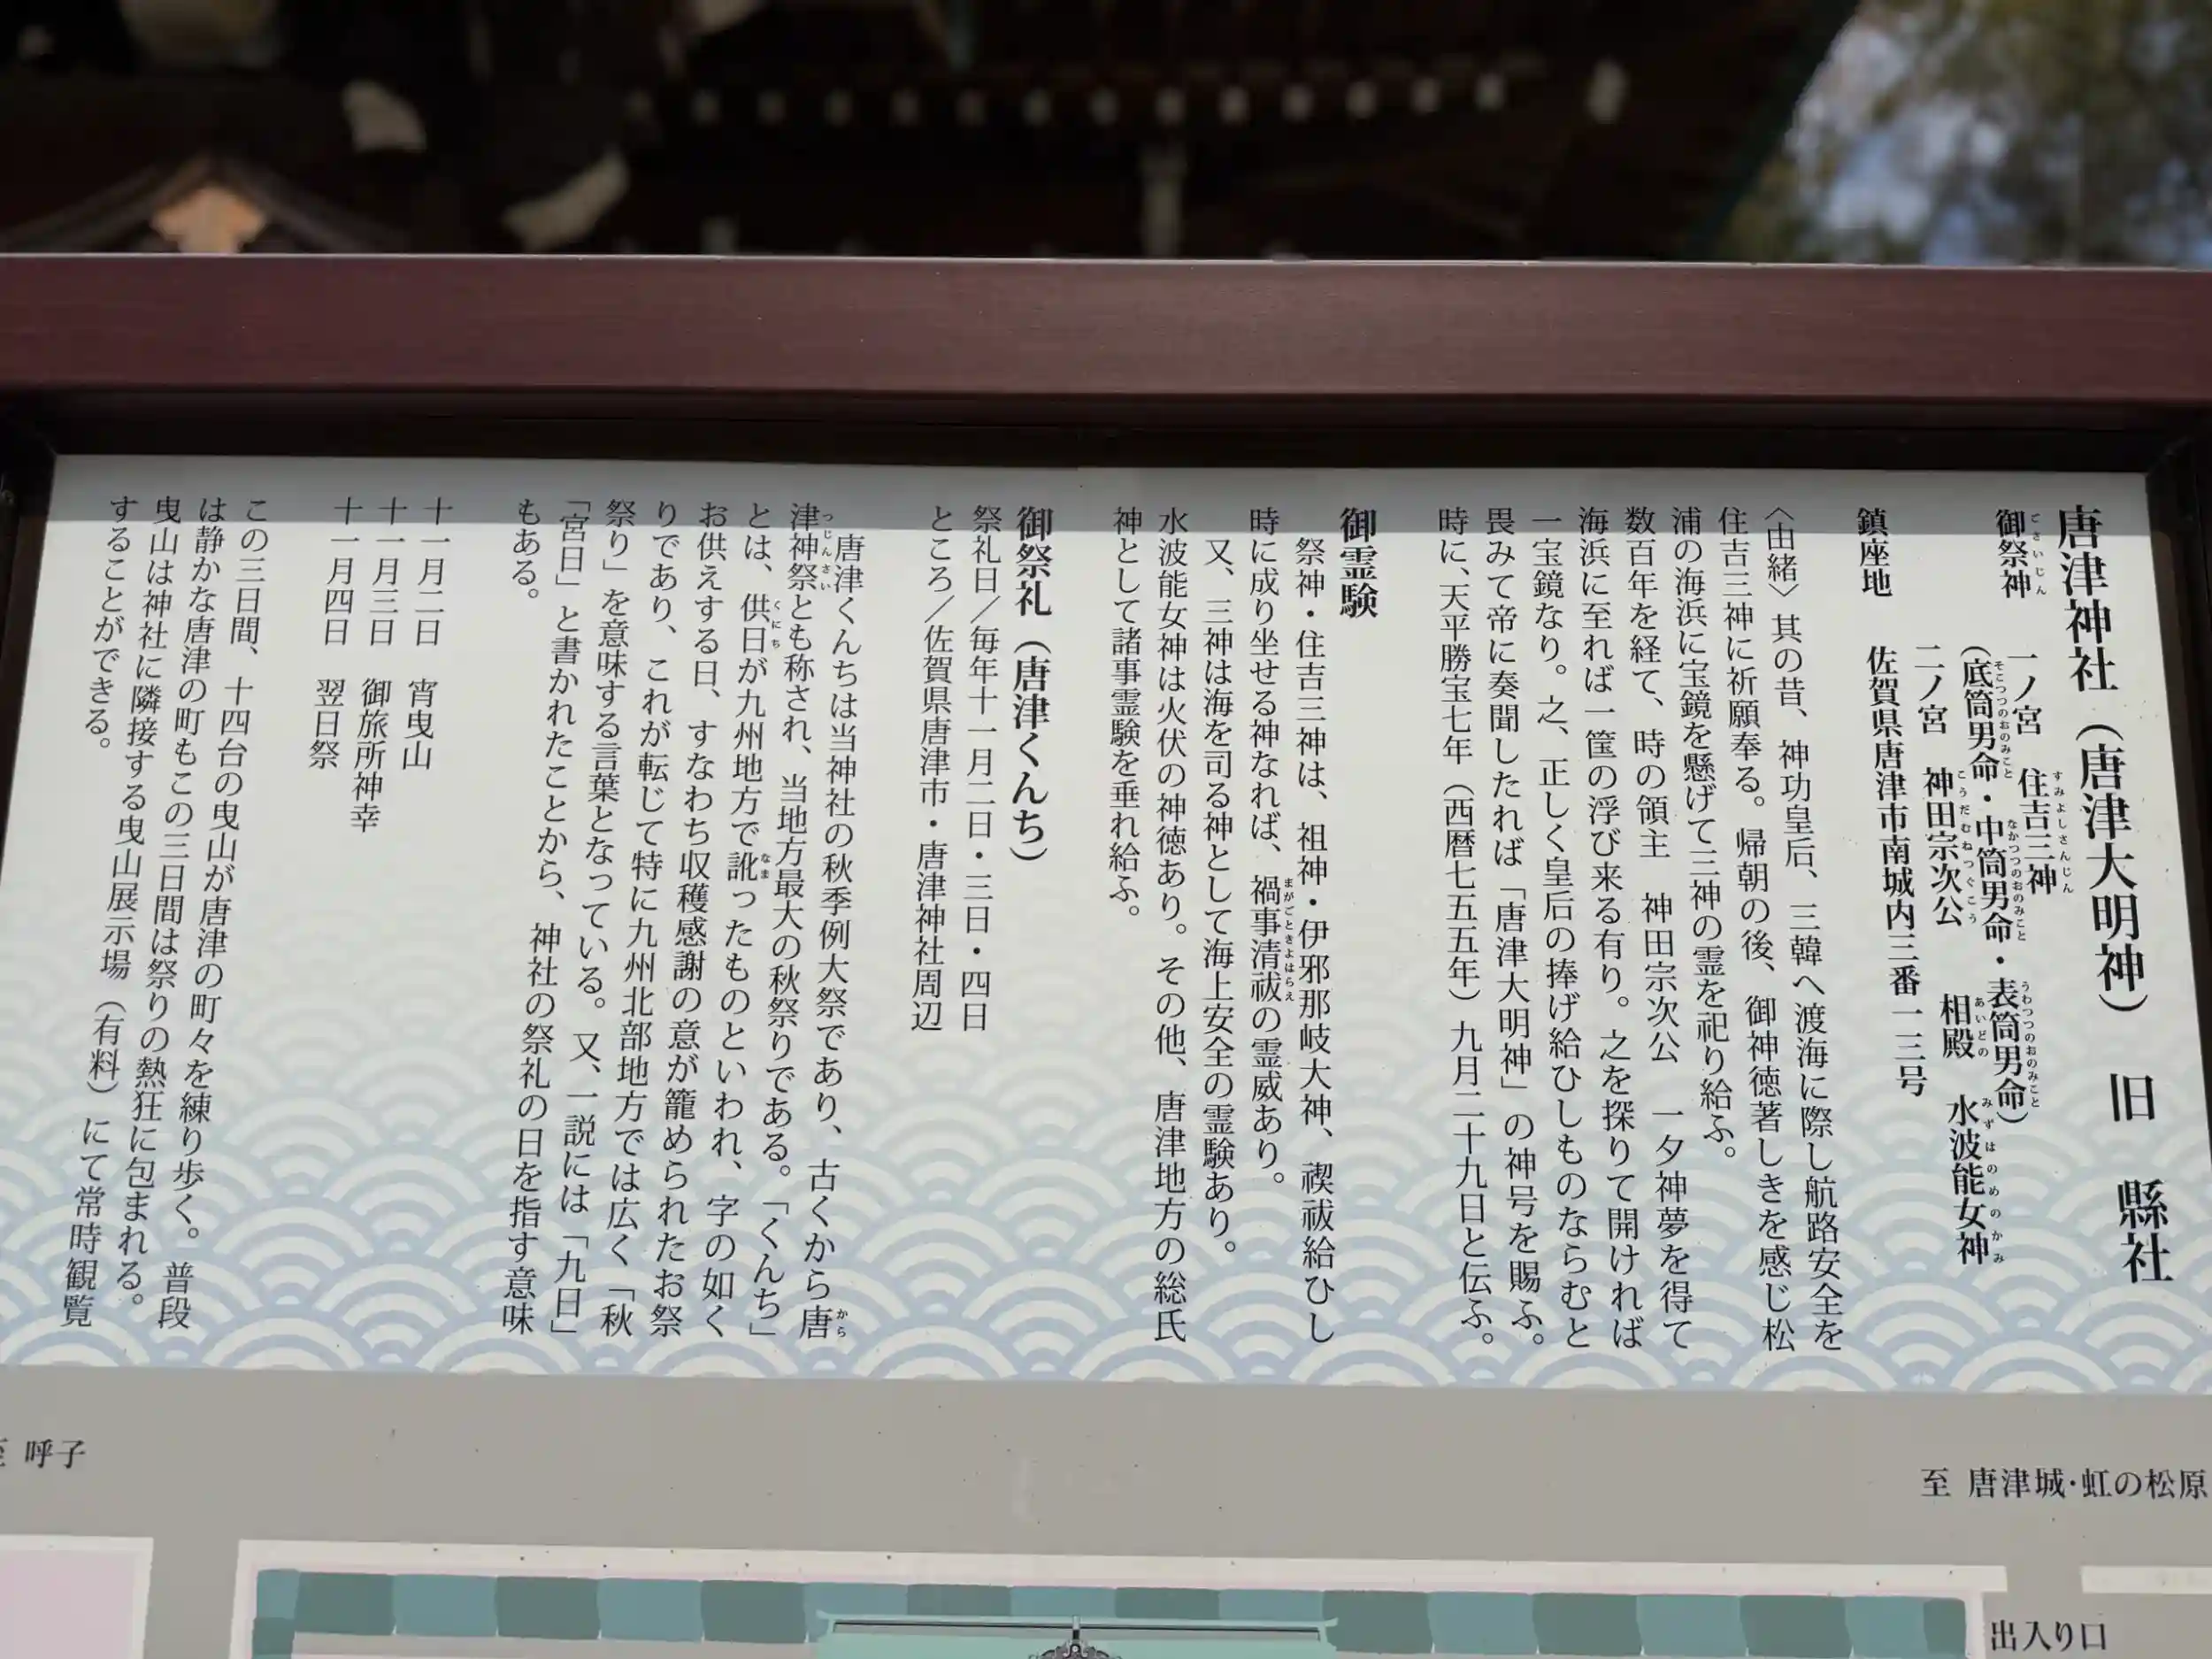 唐津神社(唐津大明神) 旧 縣社
御祭神 一ノ宮 住吉三神
(底筒男命・中筒男命・表筒男命)
二ノ宮 神田宗次公 相殿 水波能女神
鎮座地 佐賀県唐津市南城内三番一三号
〈由緒〉其の昔、神功皇后、三韓へ渡海に際し航路安全を
住吉三神に祈願奉る。帰朝の後、御神徳著しきを感じ松
浦の海浜に宝鏡を懸げて三神の霊を祀り給ふ。
数百年を経て、時の領主 神田宗次公 一夕神夢を得て
海浜に至れば一筺の浮び来る有り。之を探りて開ければ
一宝鏡なり。之、正しく皇后の捧げ給ひしものならむと
畏みて帝に奏聞したれば「唐津大明神」の神号を賜ふ。
時に、天平勝宝七年(西暦七五五年)九月二十九日と伝ふ。
御霊験
祭神・住吉三神は、祖神・伊邪那岐大神、禊祓給ひし
時に成り坐せる神なれば、禍事清祓の霊威あり。
又、三神は海を司る神として海上安全の霊験あり。
水波能女神は火伏の神徳あり。その他、唐津地方の総氏
神として諸事霊験を垂れ給ふ。
御祭礼(唐津くんち)
祭礼日/毎年十一月二日・三日・四日
ところ/佐賀県唐津市・唐津神社周辺
唐津くんちは当神社の秋季例大祭であり、古くから唐
津神祭とも称され、当地方最大の秋祭りである。「くんち」
とは、供日が九州地方で訛ったものといわれ、字の如く
お供えする日、すなわち収穫感謝の意が籠められたお祭
りであり、これが転じて特に九州北部地方では広く「秋
祭り」を意味する言葉となっている。又、一説には「九日」
「宮日」と書かれたことから、神社の祭礼の日を指す意味
もある。
十一月二日 宵曳山
十一月三日 御旅所神幸
十一月四日 翌日祭
この三日間、十四台の曳山が唐津の町々を練り歩く。普段
は静かな唐津の町もこの三日間は祭りの熱狂に包まれる。
曳山は神社に隣接する曳山展示場(有料)にて常時観覧
することができる。
至 呼子
至 唐津城・虹の松原
出入り口